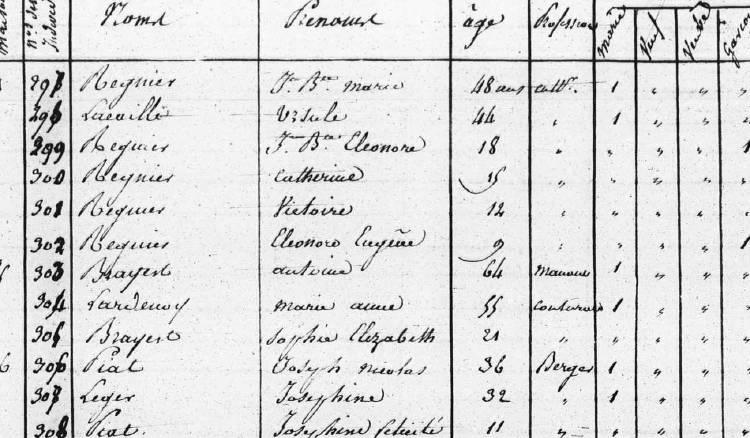 nos des Individus Noms Prénoms âge Profession marié Veuf Veuve Garçon
297 Regnier Jn Bte marie 48 ans cultr. 1 " " "
298 Lacaille Ursule 44 " 1 " " "
299 Regnier Jn Bte Eleonore 18 " " " " 1
300 Regnier Catherine 15 " " " " "
301 Regnier Victoire 12 " " " " "
302 Regnier Eleonore Eugène 9 " " " " 1
303 Brayert antoine 64 manouv 1 " " "
304 Lardenoy marie anne 55 couturière 1 " " "
305 Brayert Sophie Elizabeth 21 " " " " "
306 Piat Joseph nicolas 36 Berger 1 " " "
307 Leger Josephine 32 " 1 " " "
308 Piat Josephine felicité 11 " " " " "